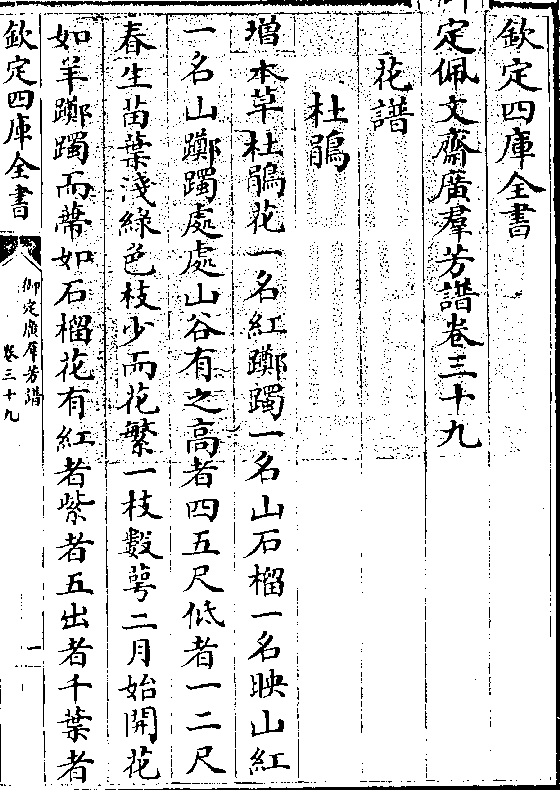 欽定四庫全書
定佩文齋廣羣芳譜卷三十九
花譜
杜鵑
增本草杜鵑花一名紅躑躅一名山石榴一名映山紅
一名山躑躅處處山谷有之高者四五尺低者一二尺
春生苗葉淺綠色枝少而花繁一枝數萼二月始開花
如羊躑躅而蔕如石榴花有紅者紫者五出者千葉者
欽定四庫全書
御定廣羣芳譜
卷三十九
一